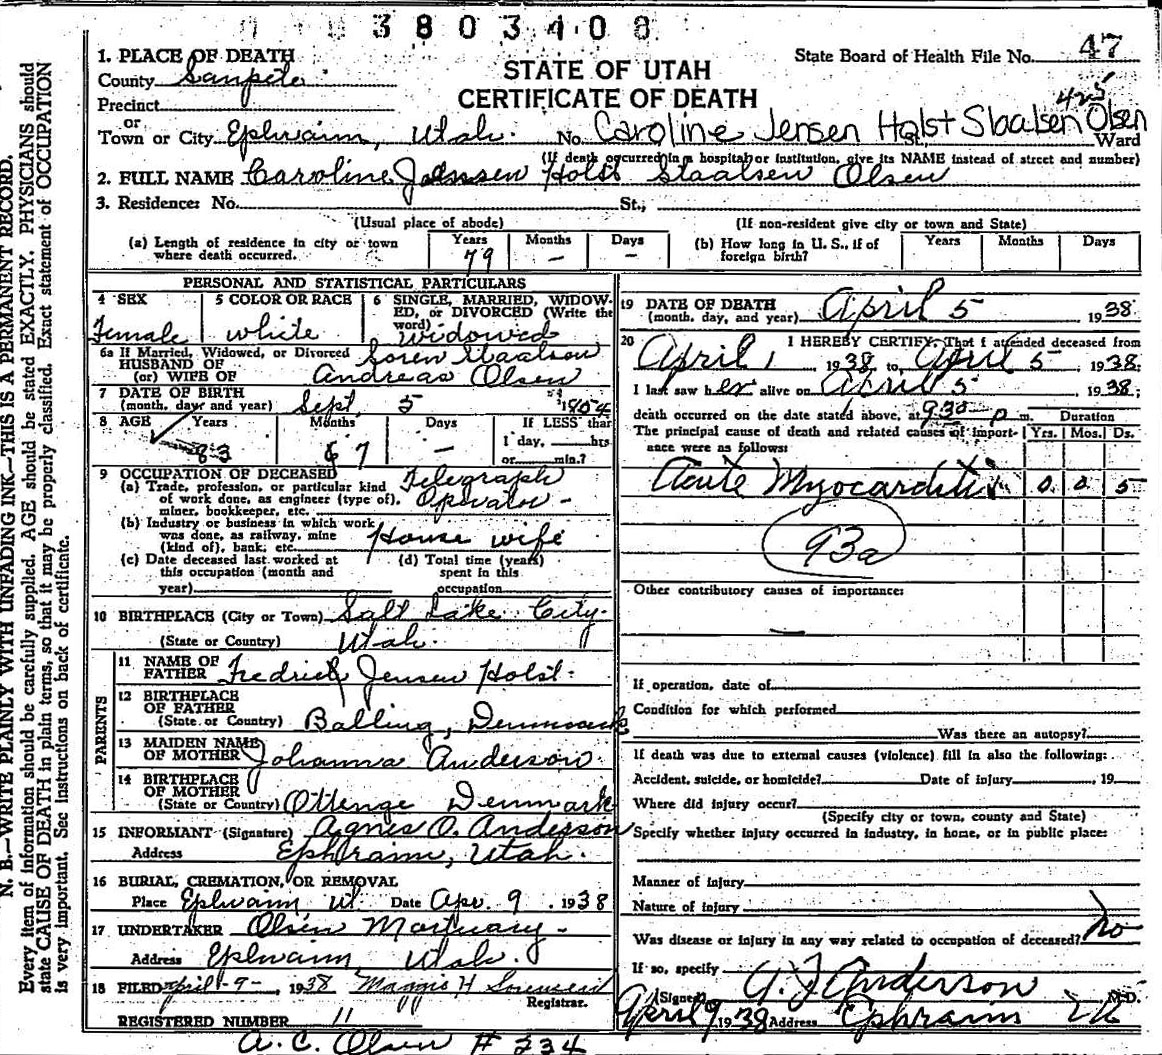 3803408
N. B.—WRITE PLAINLY WITH UNFADING INK—THIS IS A PERMANENT RECORD.
Every item of information should be carefully supplied. AGE should be stated EXACTLY. PHYSICIANS should
state CAUSE OF DEATH in plain terms, so that it may be properly classified. Exact statement of OCCUPATION
is very important. See instructions on back of certificate.
1. PLACE OF DEATH
County Sanpete
Precinct
or
Town or City Ephraim, Utah.
STATE OF UTAH
CERTIFICATE OF DEATH
State Board of Health File No. 47
425
No. Caroline Jensen Holst Slaalsen Olsen St., Ward
(If death occurred in a hospital or institution, give its NAME instead of street and number)
2. FULL NAME Caroline Jenssen Holst Staalsen Olsen
3. Residence: No. St.,
(Usual place of abode) (If non-resident give city or town and State)
(a) Length of residence in city or town where death occurred. Years 79 Months — Days —
(b) How long in U. S., if of foreign birth? Years Months Days
PERSONAL AND STATISTICAL PARTICULARS
4 SEX Female
5 COLOR OR RACE white
6 SINGLE, MARRIED, WIDOWED, or DIVORCED (Write the word) Widowed
6a If Married, Widowed, or Divorced
HUSBAND OF Soren Staalson
(or) WIFE OF Andreas Olsen
7 DATE OF BIRTH
(month, day and year) Sept. 5 1854
8 AGE Years 83 Months 6 7 Days — If LESS than 1 day, hrs or min.?
9 OCCUPATION OF DECEASED
(a) Trade, profession, or particular kind of work done, as engineer (type of), miner, bookkeeper, etc. Telegraph Operator -
(b) Industry or business in which work was done, as railway, mine (kind of), bank, etc. House wife
(c) Date deceased last worked at this occupation (month and year)
(d) Total time (years) spent in this occupation
10 BIRTHPLACE (City or Town) Salt Lake City
(State or Country) Utah.
PARENTS
11 NAME OF FATHER Fedrick Jensen Holst
12 BIRTHPLACE OF FATHER
(State or Country) Balling, Denmark
13 MAIDEN NAME OF MOTHER Johanna Anderson
14 BIRTHPLACE OF MOTHER
(State or Country) Ottenge Denmark
15 INFORMANT (Signature) Agnes O. Anderson
Address Ephraim, Utah.
16 BURIAL, CREMATION, OR REMOVAL
Place Ephraim Ut. Date Apr. 9 1938
17 UNDERTAKER Olsen Mortuary -
Address Ephraim Utah.
18 FILED April-9- 1938 Maggie H Sorensen
Registrar.
REGISTERED NUMBER 11
A. C. Olsen # 234
19 DATE OF DEATH
(month, day, and year) April 5 1938
20 I HEREBY CERTIFY, That I attended deceased from
April 1 1938, to April 5 1938;
I last saw her alive on April 5 1938;
death occurred on the date stated above, at 930 p m. Duration
The principal cause of death and related causes of importance were as follows: Yrs. Mos. Ds.
Acute Myocarditis 0 0 5
93a
Other contributory causes of importance:
—
If operation, date of
Condition for which performed
Was there an autopsy?
If death was due to external causes (violence) fill in also the following:
Accident, suicide, or homicide? Date of injury , 19
Where did injury occur?
(Specify city or town, county and State)
Specify whether injury occurred in industry, in home, or in public place:
Manner of injury
Nature of injury
Was disease or injury in any way related to occupation of deceased? No
If so, specify
(Signed) A. J. Anderson M.D.
April 9 1938 Address Ephraim Ut